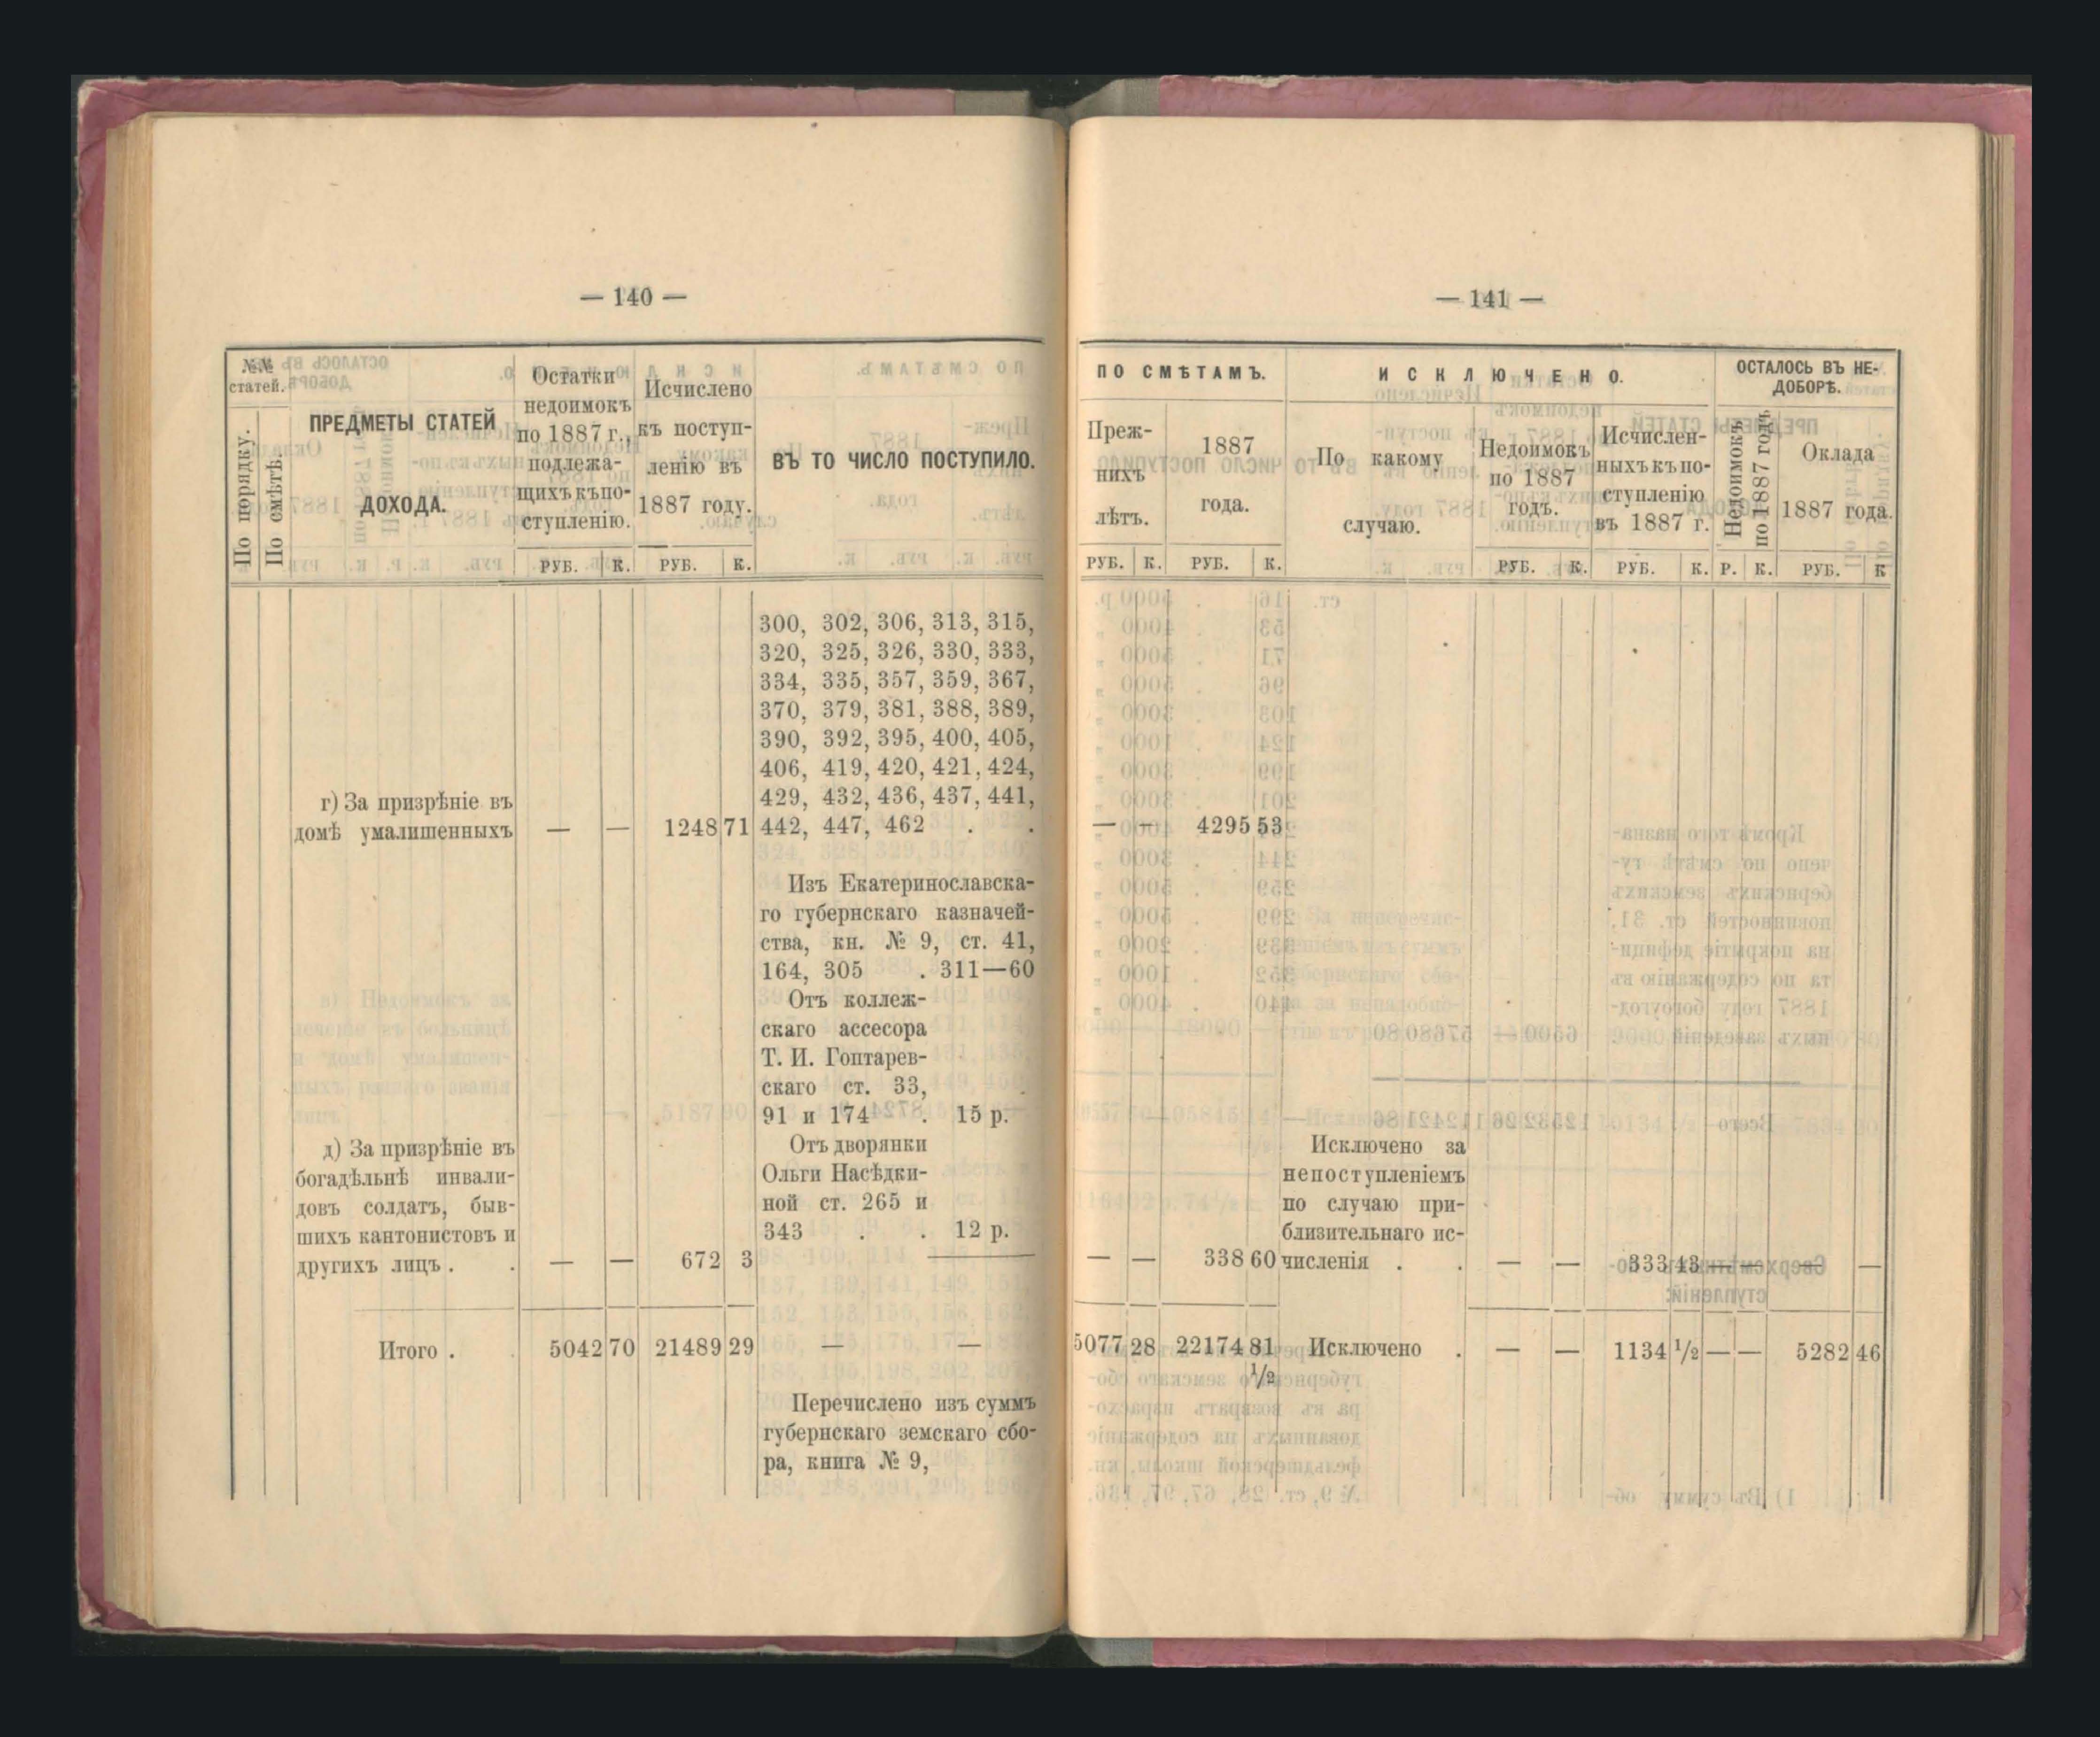 — 140 —
№№
статей.
По порядку.
По смѣтѣ.
ПРЕДМЕТЫ СТАТЕЙ
ДОХОДА.
Остатки
недоимокъ
по 1887 г.,
подлежа-
щихъ къ по-
ступленію.
РУБ. К.
Исчислено
къ поступ-
ленію въ
1887 году.
РУБ. К.
ВЪ ТО ЧИСЛО ПОСТУПИЛО.
300, 302, 306, 313, 315,
320, 325, 326, 330, 333,
334, 335, 357, 359, 367,
370, 379, 381, 388, 389,
390, 392, 395, 400, 405,
406, 419, 420, 421, 424,
429, 432, 436, 437, 441,
г) За призрѣніе въ
домѣ умалишенныхъ — — 1248 71 442, 447, 462 . .
Изъ Екатеринославска-
го губернскаго казначей-
ства, кн. № 9, ст. 41,
164, 305 . 311—60
Отъ коллеж-
скаго ассесора
Т. И. Гоптарев-
скаго ст. 33,
91 и 174 . 15 р.
Отъ дворянки
Ольги Насѣдки-
ной ст. 265 и
343 . . 12 р.
д) За призрѣніе въ
богадѣльнѣ инвали-
довъ солдатъ, быв-
шихъ кантонистовъ и
другихъ лицъ . . — — 672 3
Итого . . 5042 70 21489 29 — —
Перечислено изъ суммъ
губернскаго земскаго сбо-
ра, книга № 9,
— 141 —
ПО СМѢТАМЪ.
Преж-
нихъ
лѣтъ.
РУБ. К.
1887
года.
РУБ. К.
ИСКЛЮЧЕНО.
По какому
случаю.
Недоимокъ
по 1887
годъ.
РУБ. К.
Исчислен-
ныхъ къ по-
ступленію
въ 1887 г.
РУБ. К.
ОСТАЛОСЬ ВЪ НЕ-
ДОБОРѢ.
Недоимокъ
по 1887 годъ
Р. К.
Оклада
1887 года.
РУБ. К
— — 4295 53
Исключено за
непоступленіемъ
по случаю при-
близительнаго ис-
— — 338 60 численія . . — — 333 43 — — — —
5077 28 22174 81 Исключено . — — 1134 1/2 — — 5282 46
1/2